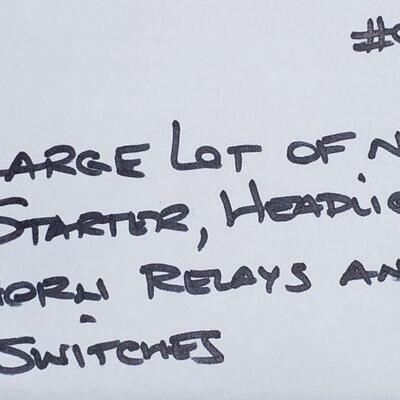 #
LARGE LOT OF N
STARTER, HEADLIG
HORN RELAYS AN
SWITCHES